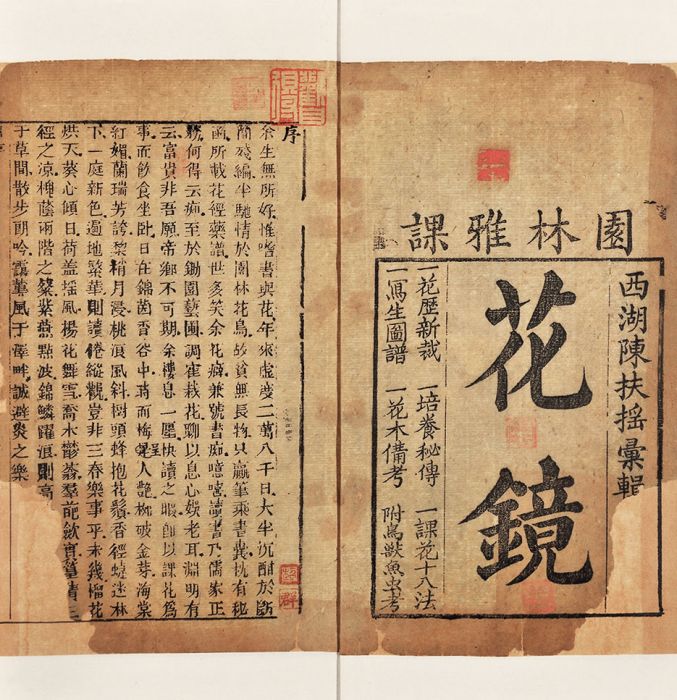 園林雅課
西湖陳扶搖彙輯
花鏡
一花歷新裁 一培養秘傳 一課花十八法
一寫生圖譜 一花木備考 附鳥獸魚虫考
序
余生無所好惟嗜書與花年來虛度二萬八千日大半沉酣於斷
簡殘編半馳情於園林花鳥故貧無長物只贏筆乘書囊枕有秘
函所載花經藥譜世多笑余花癖兼號書痴噫嘻讀書乃儒家正
務何得云痴至於鋤園藝圃調隺栽花聊以息心娛老耳淵明有
云富貴非吾願帝鄉不可期余棲息一廛快讀之暇卽以課花爲
事而飲食坐臥日在錦茵香谷中時而梅呈人艷柳破金芽海棠
紅媚蘭瑞芳誇梨梢月浸桃浪風斜樹頭蜂抱花鬚香徑蝶迷林
下一庭新色遍地繁華則讀倦縱觀豈非三春樂事乎未幾榴花
烘天葵心傾日荷蓋搖風楊花舞雪喬木鬱蓊羣葩斂實篁清三
徑之涼槐蔭兩階之粲紫燕點波錦鱗躍浪則高
于草間散步朗吟霑華風于澤畔誠避炎之樂